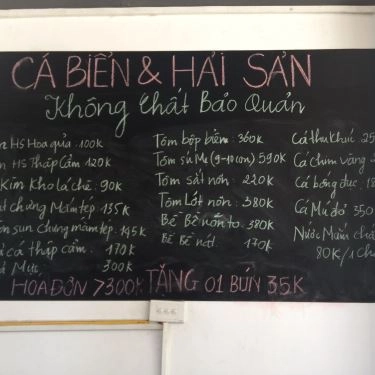 CÁ BIỂN & HẢI SẢN
Không Chất Bảo Quản
HS Hoa quả 100K
HS Thập Cẩm 120K
Kim Kho lá chè 90K
chưng Mắm tép 135K
sụn chưng mắm tép 145K
cá thập cẩm 170K
Mực 300K
Tôm bộp biển 360K
Tôm sú Mẹ (9-10 con) 590K
Tôm sắt nõn 220K
Tôm Lớt nõn 380K
Bề Bề nõn to 380K
Bề Bề nõn 170K
Cá thu khúc
Cá chim vàng
Cá bống đục
Cá Mú đỏ 350
Nước Mắm
80K/1
HÓA ĐƠN >300K TẶNG 01 BÚN 35K